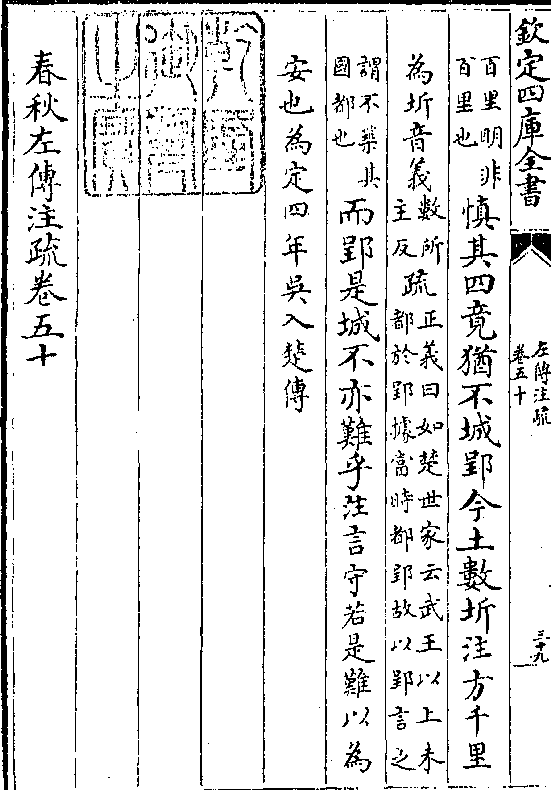 欽定四庫全書
左傳注疏
卷五十
三十九
百里明非
百里也
慎其四竟猶不城郢今土數圻注方千里
為圻音義
數所
主反
疏
正義曰如楚世家云武王以上未
都於郢據當時都郢故以郢言之
謂不築其
國都也
而郢是城不亦難乎注言守若是難以為
安也為定四年吳入楚傳
春秋左傳注疏卷五十